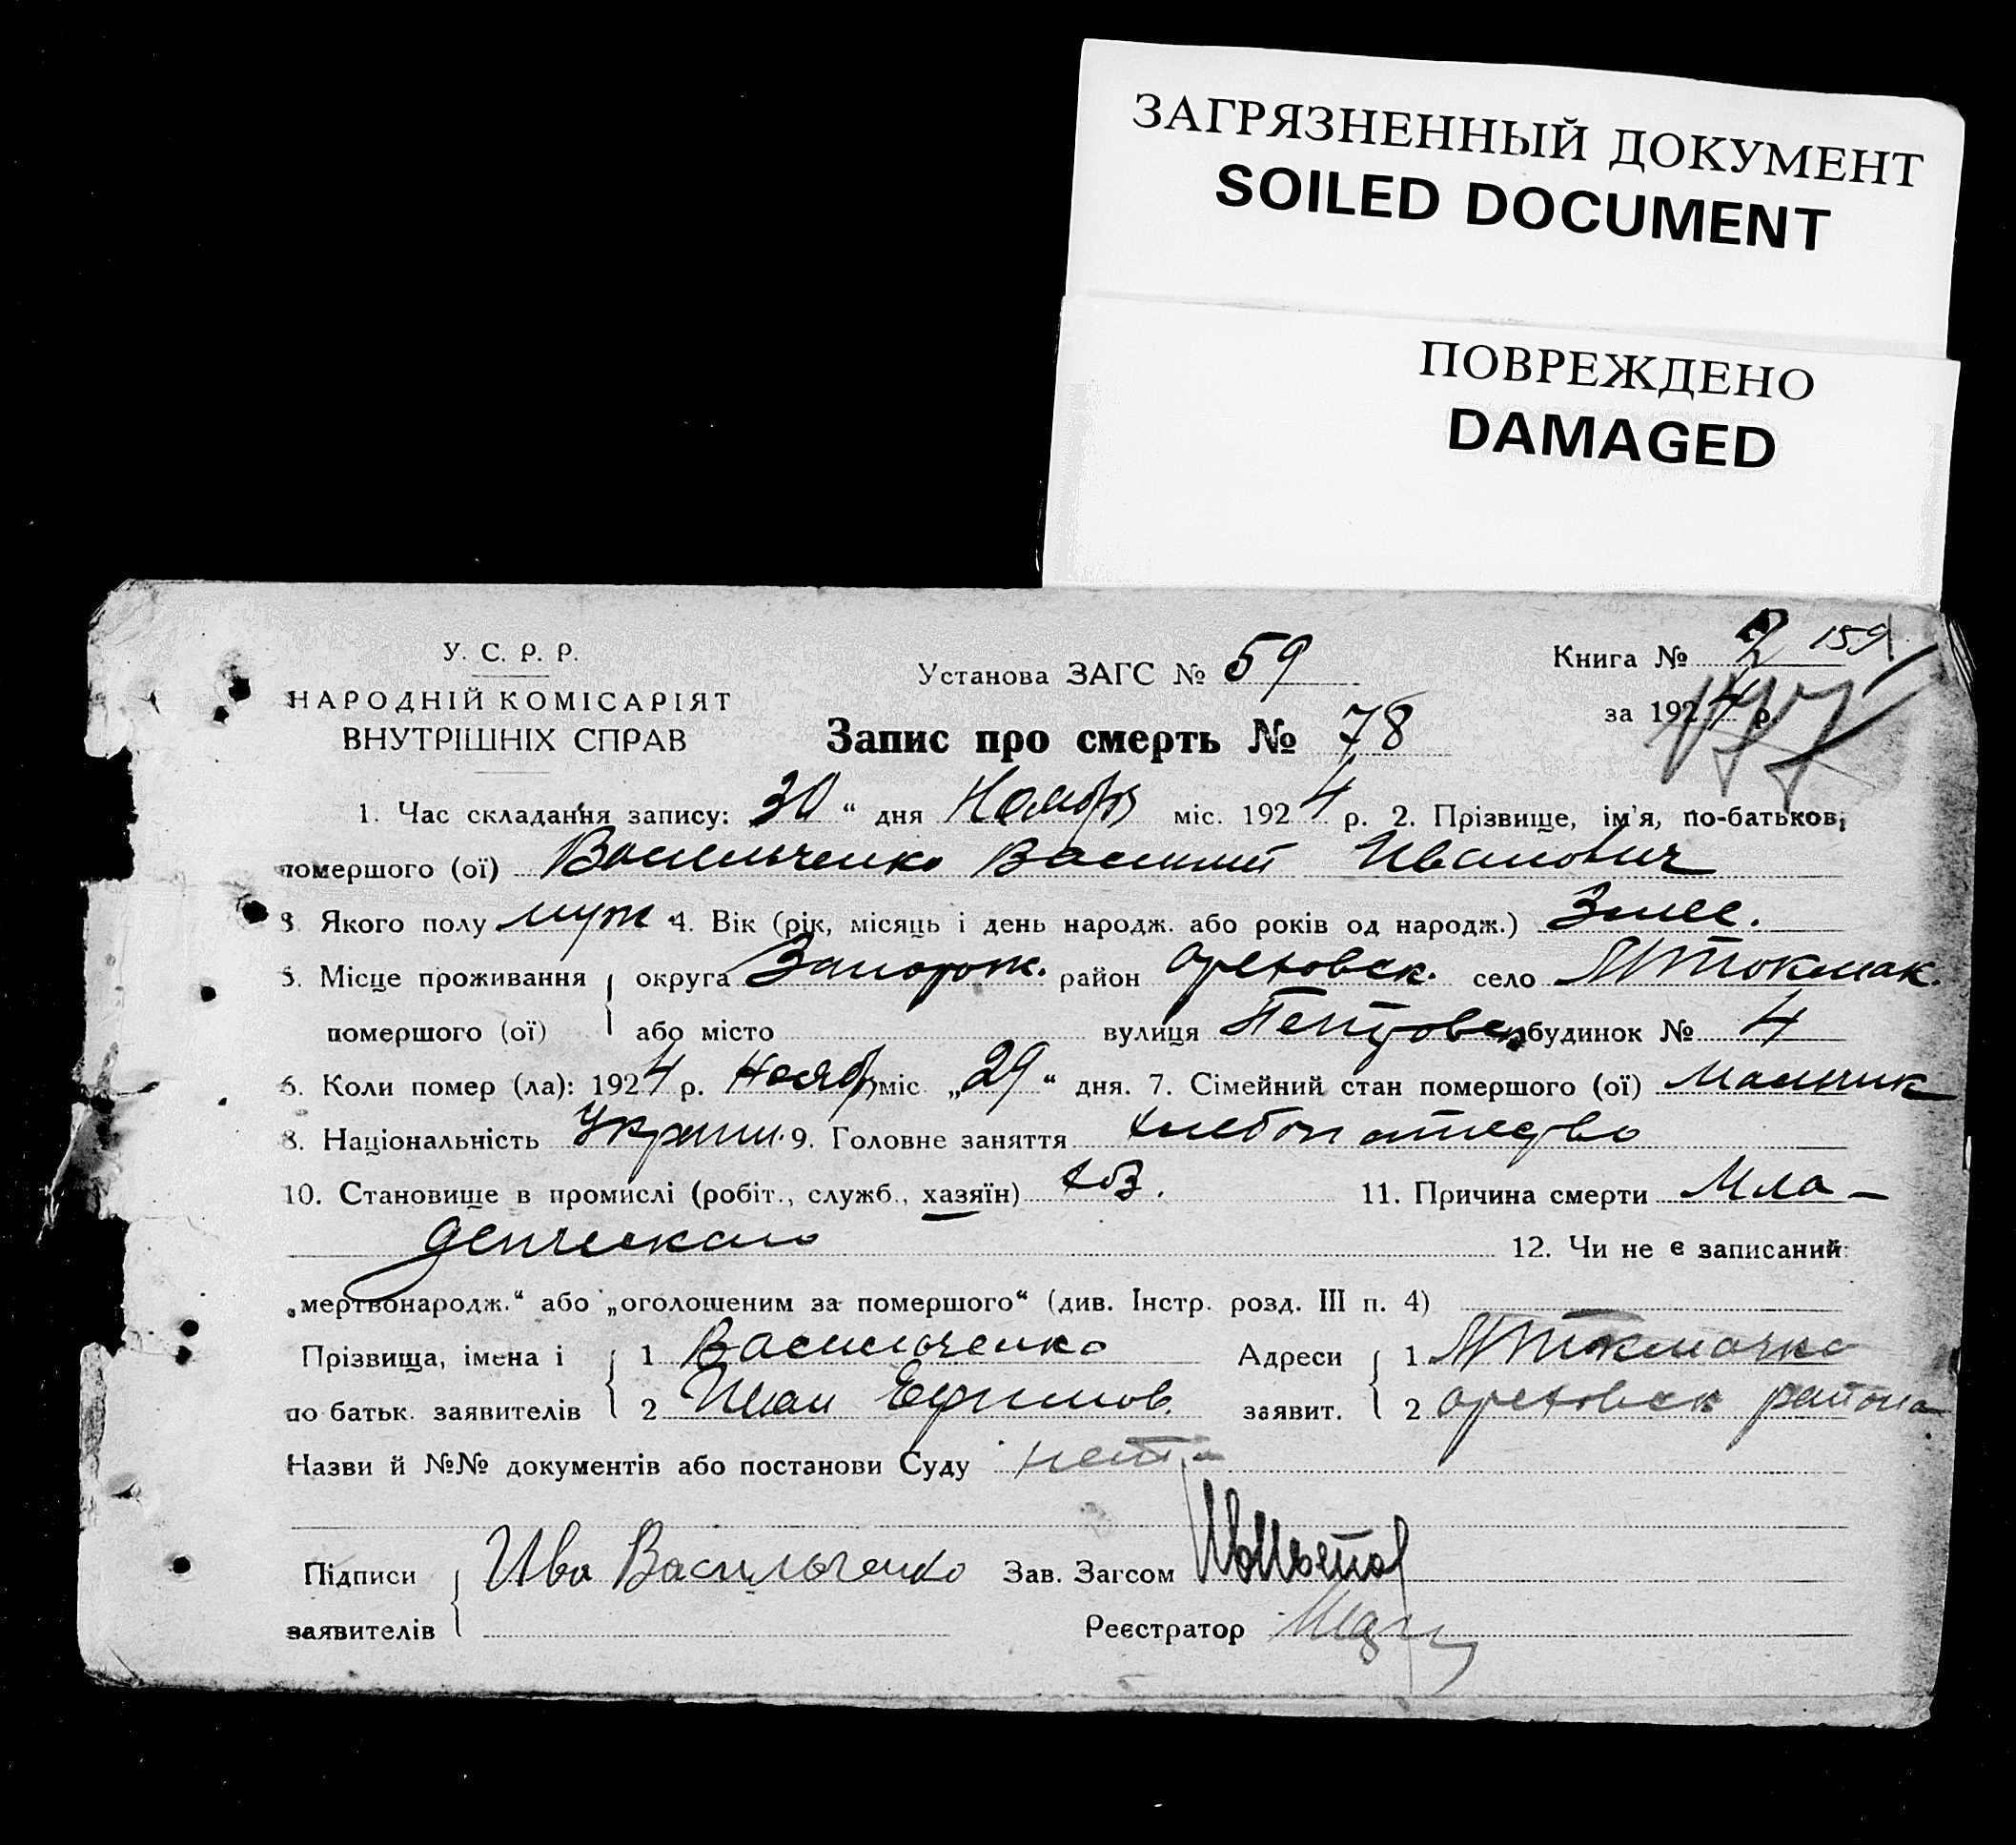 ЗАГРЯЗНЕННЫЙ ДОКУМЕНТ
SOILED DOCUMENT
ПОВРЕЖДЕНО
DAMAGED
У. С. Р. Р.
НАРОДНІЙ КОМІСАРІЯТ
ВНУТРІШНІХ СПРАВ
Установа ЗАГС № 59
Книга № 159
за 1924 р.
Запис про смерть № 78
1. Час складання запису: 30 “ дня Ноября міс. 1924 р. 2. Прізвище, ім'я, по-батькові
помершого (ої) Васильченко Василий Иванович
3 Якого полу муж 4. Вік (рік, місяць і день народж. або років од народж.) 3 мес.
5. Місце проживання округа Запорож. район Ореховск. село М Токмак.
помершого (ої) або місто вулиця будинок № 4
6. Коли помер (ла): 1924 р. Ноябр міс „29“ дня. 7. Сімейний стан помершого (ої) Мальчик
8. Національність Украин. 9. Головне заняття хлебопашество
10. Становище в промислі (робіт., служб., хазяїн) хоз. 11. Причина смерти Мла-
денческая 12. Чи не є записаний
„мертвонародж.“ або „оголошеним за помершого“ (див. Інстр. розд. III п. 4)
Прізвища, імена і 1 Васильченко Адреси 1 М Токмачка
по батьк. заявителів 2 Иван Ефимов. заявит. 2 Ореховск района
Назви й №№ документів або постанови Суду нет
Підписи Ива Васильченко Зав. Загсом
заявителів Реєстратор